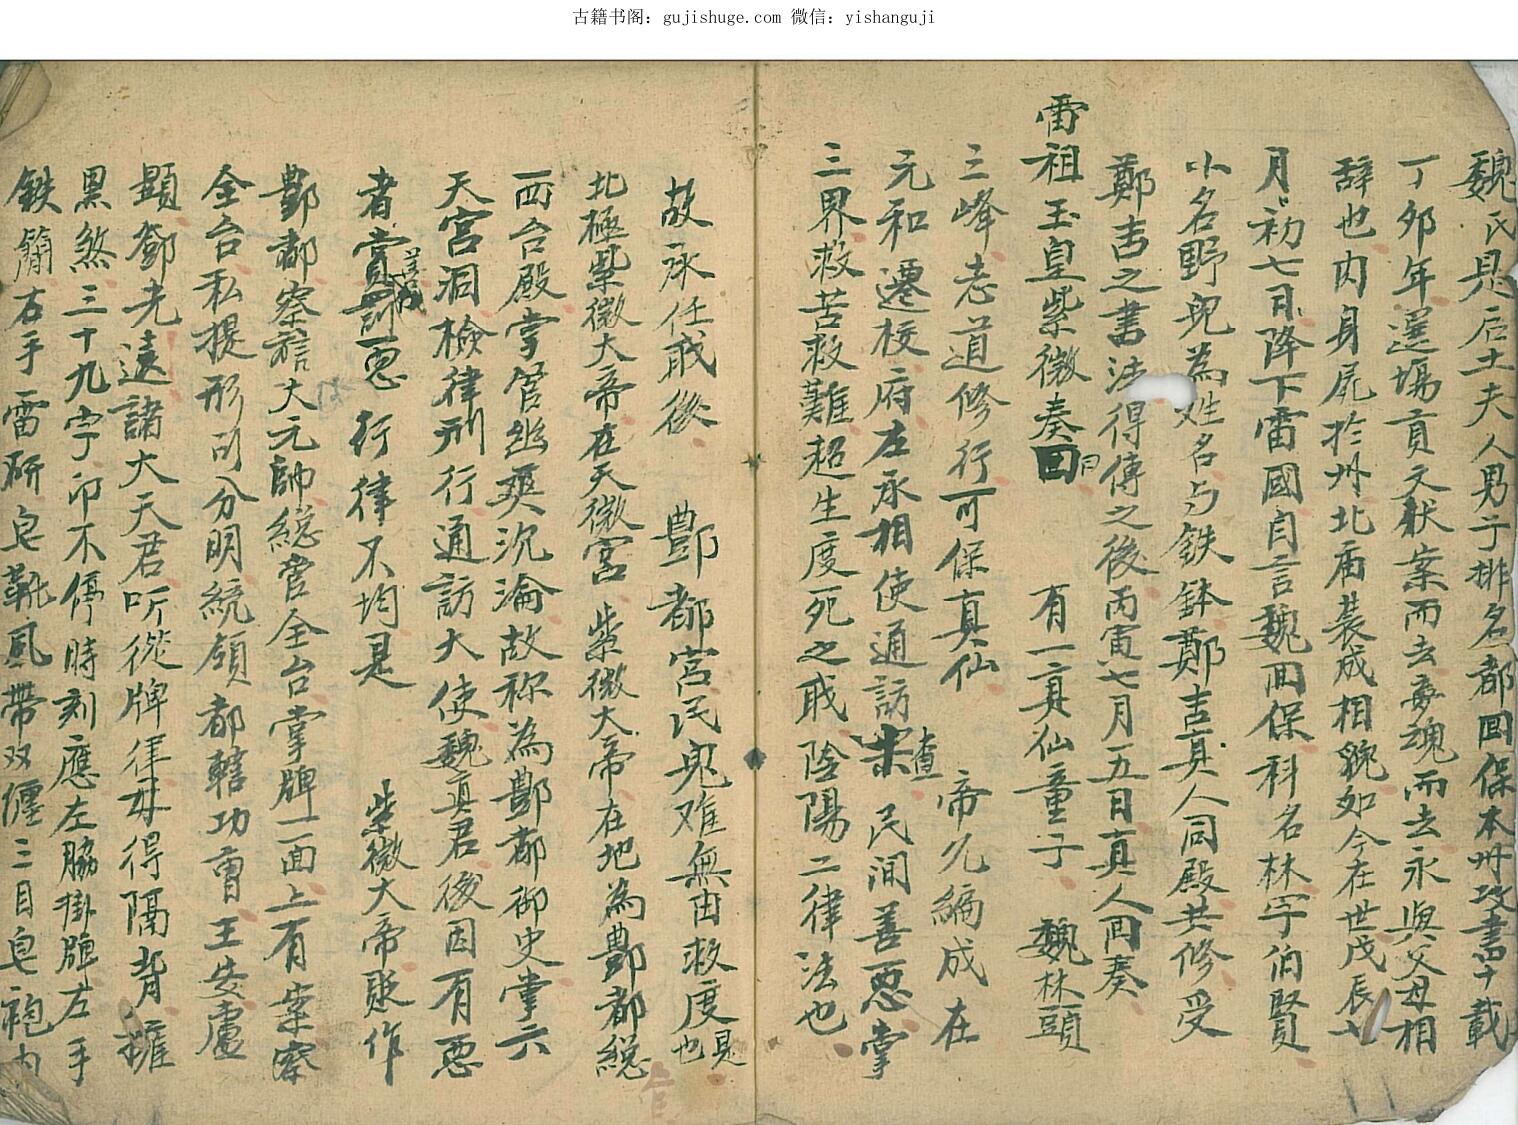 古籍书阁：gujishuge.com 微信：yishanguji
魏氏是后土夫人男子排名都囬保本州攻書十載
丁夘年選塲貢文献案而去夢魂而去永與父母相
辞也肉身屍扵州北庙装成相貌如今在世戊辰七
月初七日降下雷國自言魏囬保科名林字伯賢
小名野児為姓名与鉄鉢鄭吉真人同殿共修受
鄭吉之書法得傳之後丙寅七月五日真人囬奏
雷祖玉皇紫微奏囬曰 有一真仙童子 魏林頭
三峰老道修行可保真仙 帝允編成在
元和遷校府左承相使通訪查民间善惡掌
三界救苦救難超生度死之戝陰陽二律法也
故承任戝後 酆都宮民児难無由救度是也
北極紫微大帝在天微宮 紫微大帝在地為酆都総官
四台殿掌管幽爽沉淪故称為酆都御史掌六
天宮洞檢律刑行通訪大使魏真君後因有惡
者賞善罰惡 行律不均是 紫微大帝貶作
酆都察訪大元帥総管全台掌牌一面上有業察
全台私提形司分明統領都轄功曹王安盧
顕鄧光遠諸大天君听從牌律毋得隔背擁
黒煞三十九字印不停時刻應左脇掛牌左手
鉄簡右手雷硏皂靴風帶双纏三目皂袍内